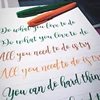 Do what you love to do
Do what you love to do
All you need to do is try
All you need to do is try
You can do hard things